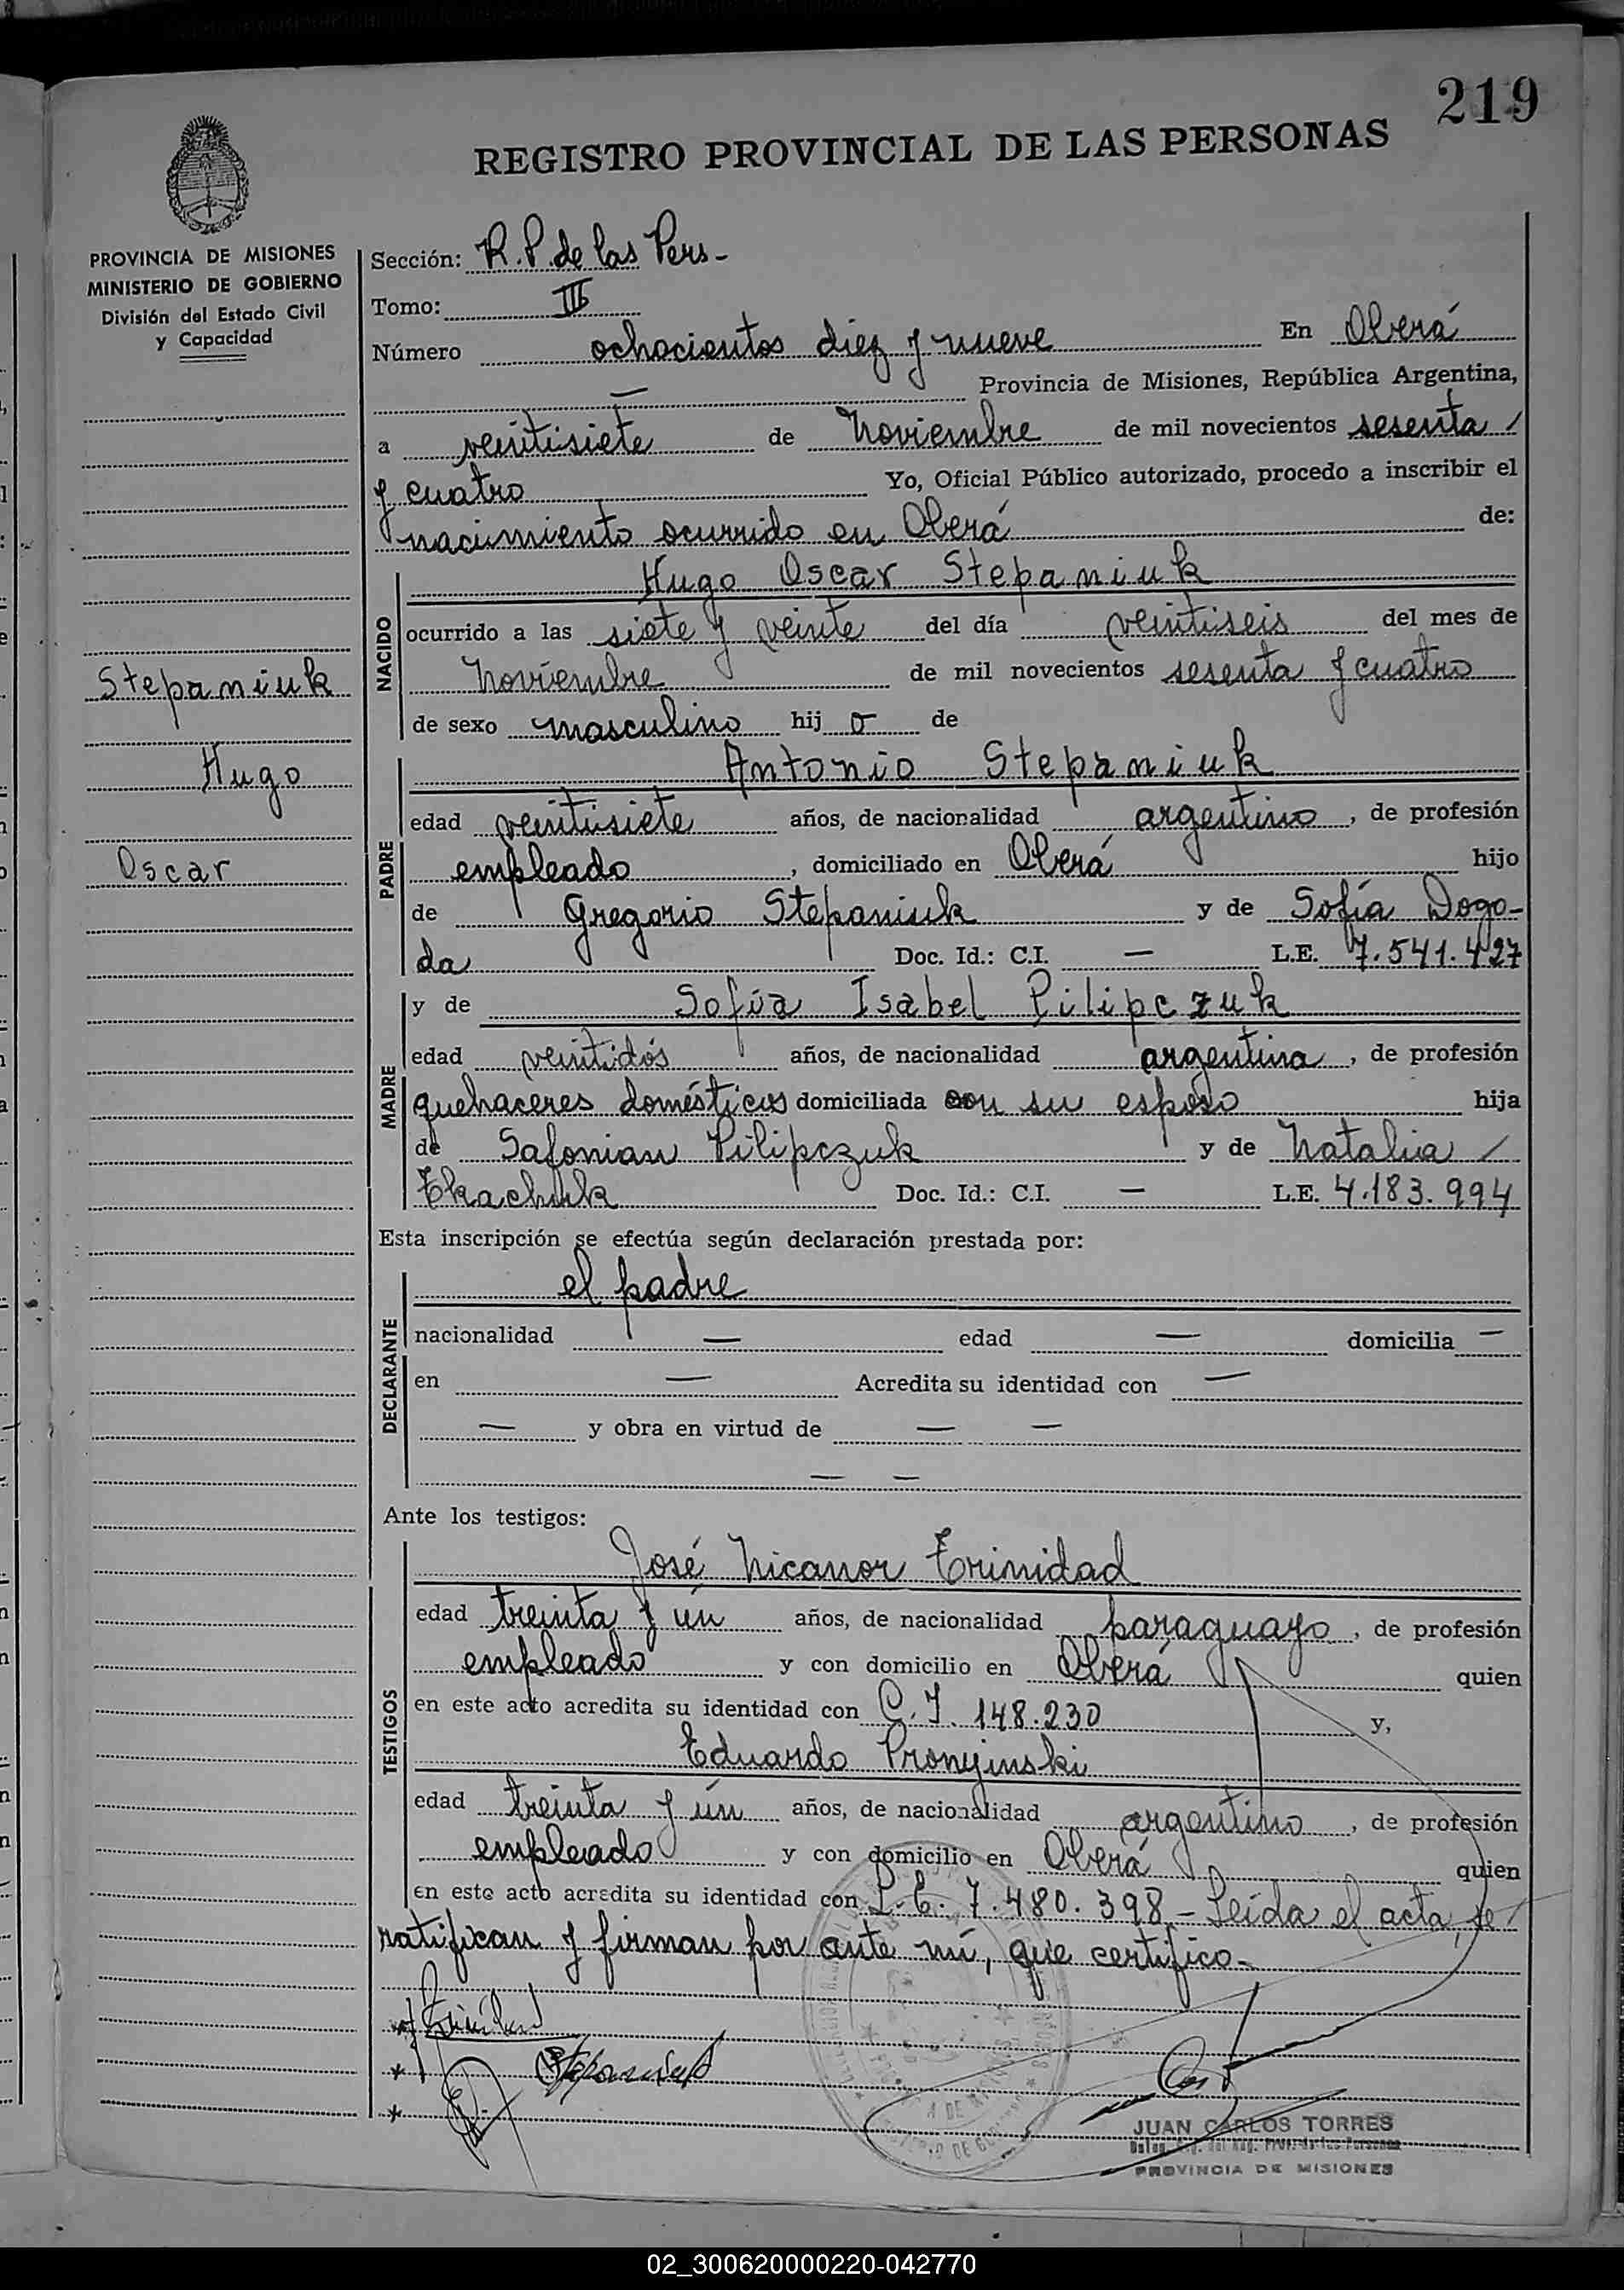 219
REGISTRO PROVINCIAL DE LAS PERSONAS
PROVINCIA DE MISIONES
MINISTERIO DE GOBIERNO
División del Estado Civil
y Capacidad
Stepaniuk
Hugo
Oscar
Sección: R.P. de las Pers-
Tomo: III
Número ochocientos diez y nueve En Oberá
— Provincia de Misiones, República Argentina,
a veintisiete de Noviembre de mil novecientos sesenta /
y cuatro Yo, Oficial Público autorizado, procedo a inscribir el
nacimiento ocurrido en Oberá de:
NACIDO
Hugo Oscar Stepaniuk
ocurrido a las siete y veinte del día veintiseis del mes de
Noviembre de mil novecientos sesenta y cuatro
de sexo masculino hij o de
PADRE
Antonio Stepaniuk
edad veintisiete años, de nacionalidad argentino, de profesión
empleado, domiciliado en Oberá hijo
de Gregorio Stepaniuk y de Sofía Dogo-
da Doc. Id.: C.I. — L.E. 7.541.427
MADRE
y de Sofía Isabel Pilipczuk
edad veintidós años, de nacionalidad argentina, de profesión
quehaceres domésticos domiciliada con su esposo hija
de Safonian Pilipczuk y de Natalia /
Tkachuk Doc. Id.: C.I. — L.E. 4.183.994
Esta inscripción se efectúa según declaración prestada por:
DECLARANTE
el padre
nacionalidad — edad — domicilia —
en — Acredita su identidad con —
— y obra en virtud de — —
— —
Ante los testigos:
TESTIGOS
José Nicanor Trinidad
edad treinta y ún años, de nacionalidad paraguayo, de profesión
empleado y con domicilio en Oberá quien
en este acto acredita su identidad con C.I. 148.230 y,
Eduardo Pronyinski
edad treinta y ún años, de nacionalidad argentino, de profesión
empleado y con domicilio en Oberá quien
en este acto acredita su identidad con L.E. 7.480.398 - Leída el acta, se /
ratifican y firman por ante mí, que certifico-
Stepaniuk
JUAN CARLOS TORRES
PROVINCIA DE MISIONES
02_300620000220-042770